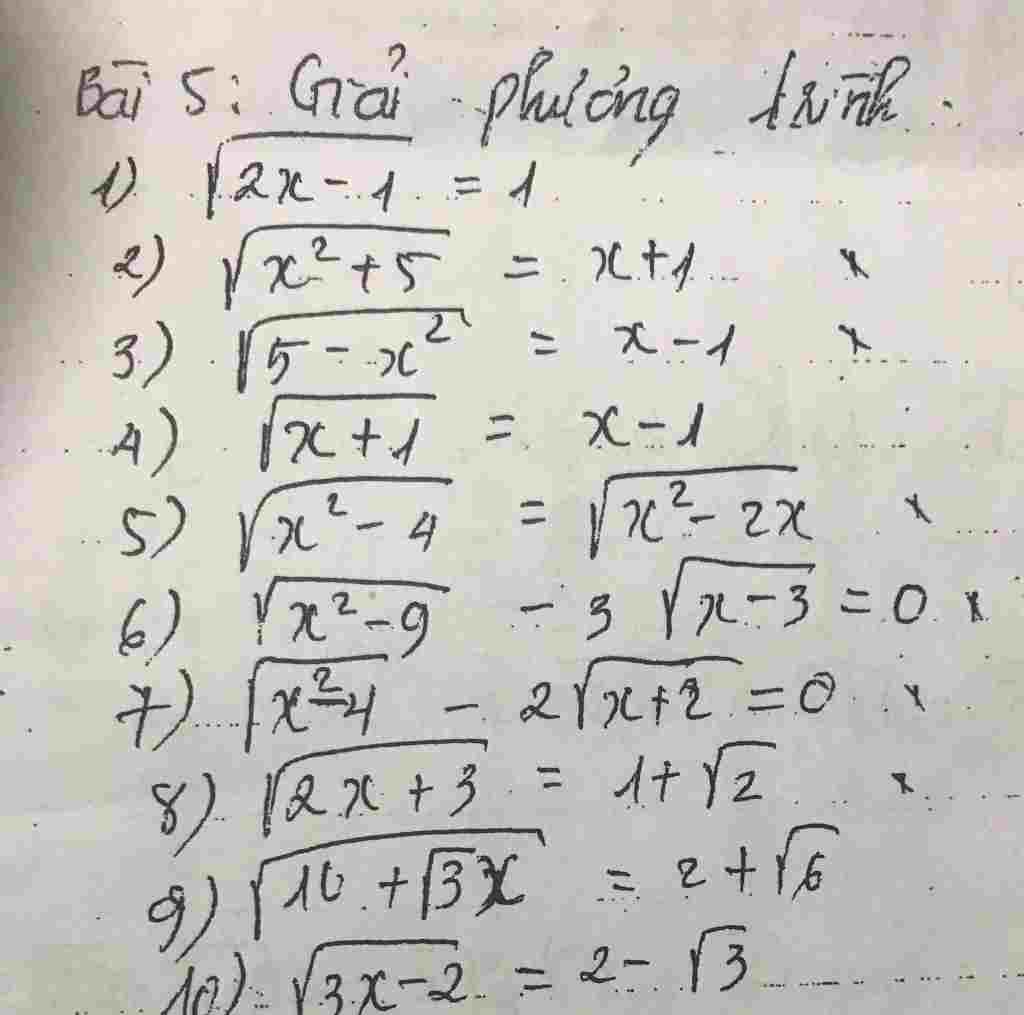 Bài 5: Giải phương trình.
1) √(2x - 1) = 1
2) √(x² + 5) = x + 1 x
3) √(5 - x²) = x - 1 x
4) √(x + 1) = x - 1
5) √(x² - 4) = √(x² - 2x) x
6) √(x² - 9) - 3√(x - 3) = 0 x
7) √(x² - 4) - 2√(x + 2) = 0 x
8) √(2x + 3) = 1 + √2 x
9) √(10 + √3x) = 2 + √6
10) √(3x - 2) = 2 - √3